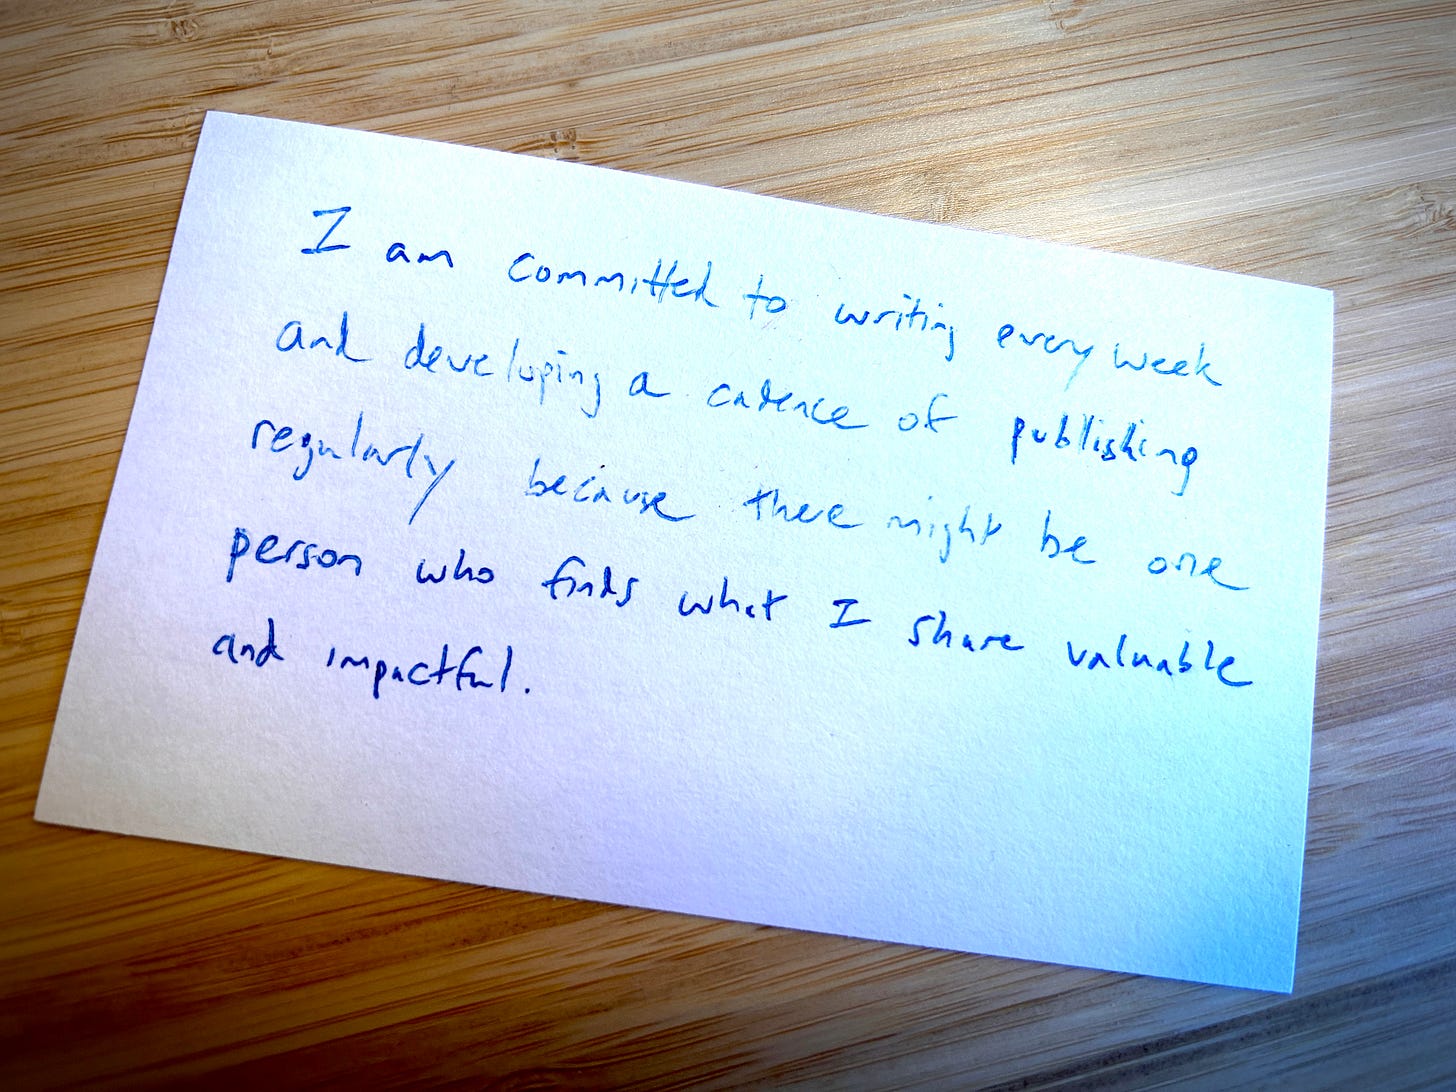 I am committed to writing every week
and developing a cadence of publishing
regularly because there might be one
person who finds what I share valuable
and impactful.